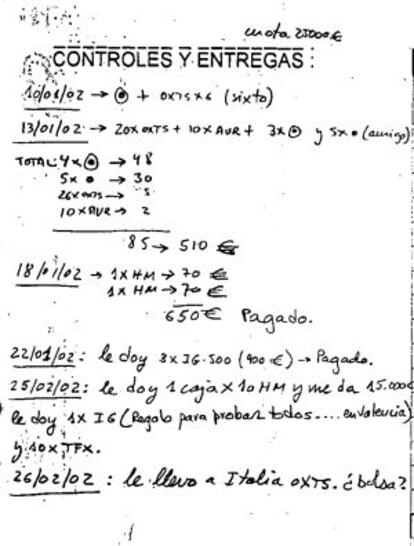 nota 25000€
CONTROLES Y ENTREGAS :
10/01/02 → ⊙ + OXTS x 6 (sixto)
13/01/02 → 20x OXTS + 10 x AUR + 3x ⊙ y 5x • (amigo)
TOTAL: 4 x ⊙ → 48
5x • → 30
26x OXTS → 5
10 x AUR → 2
85 → 510 €
18/01/02 → 1 x HM → 70 €
1 x HM → 70 €
650 € Pagado.
22/01/02: le doy 3 x IG-500 (900 €) → Pagado.
25/02/02: le doy 1 caja x 10 HM y me da 15.000€
le doy 1x IG (Regalo para probar todos.... en valencia)
y 10x TFX.
26/02/02 : le llevo a Italia OXTS. ¿bolsa?